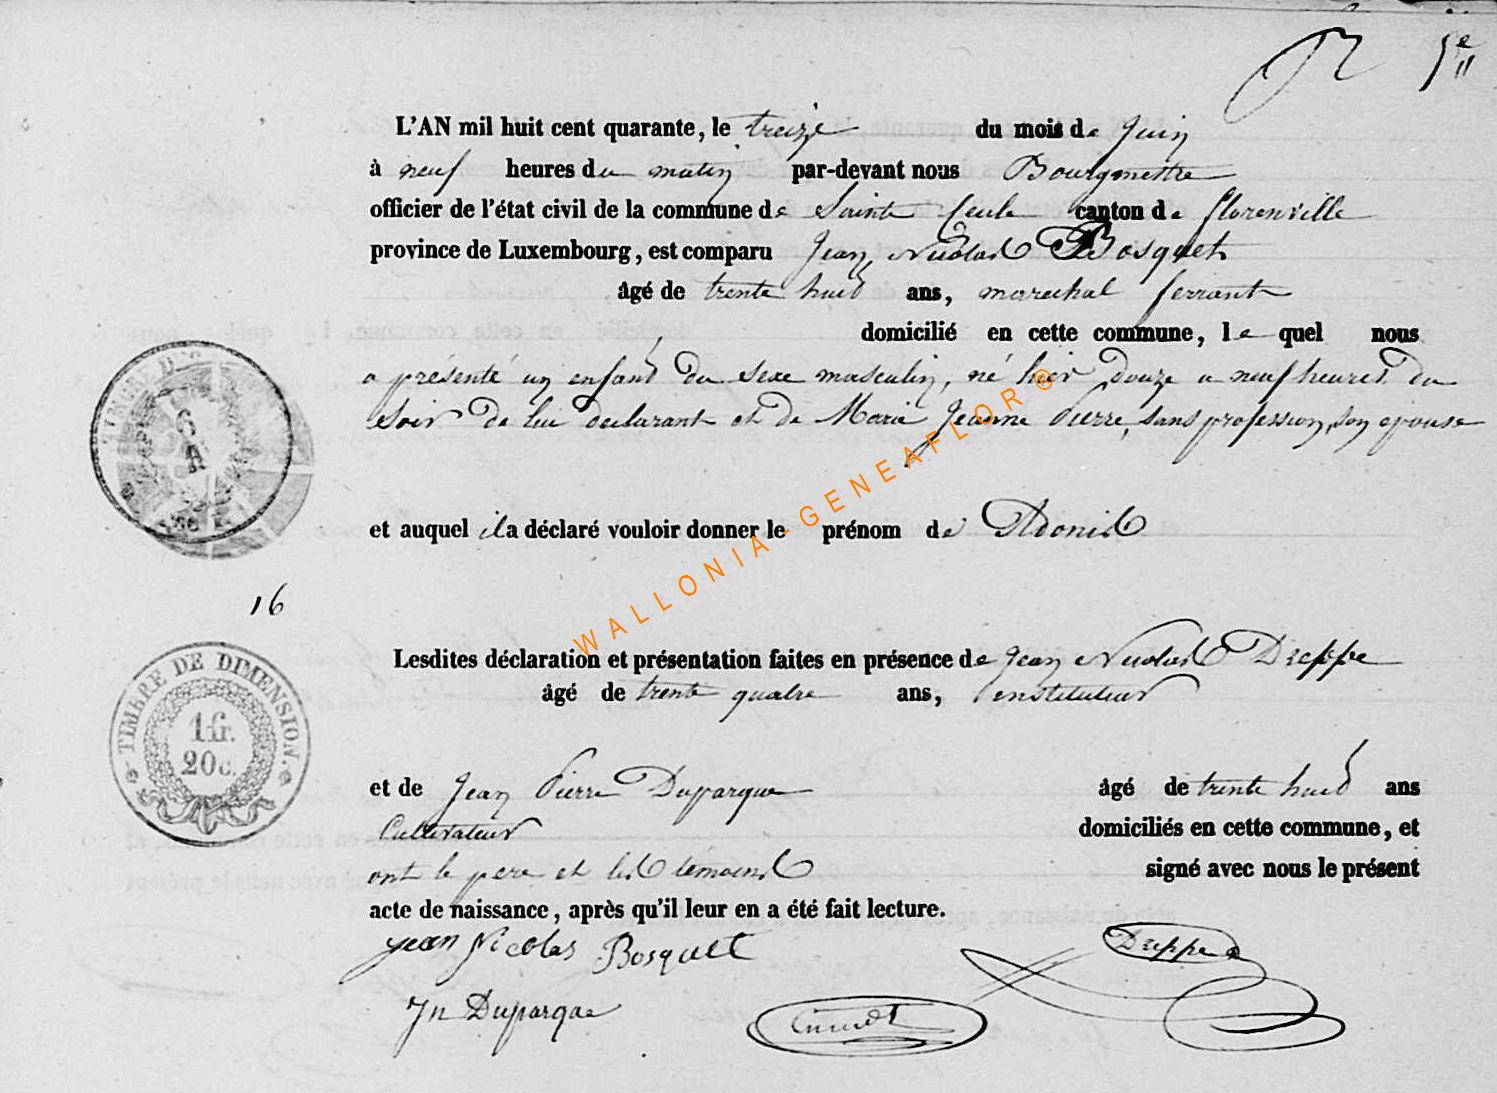 5e
L'AN mil huit cent quarante, le treize du mois de Juin
à neuf heures du matin par-devant nous Bourgmestre
officier de l'état civil de la commune de Sainte Cecile canton de florenville
province de Luxembourg, est comparu Jean Nicolas Bosquet
âgé de trente huit ans, marechal ferrant
domicilié en cette commune, lequel nous
a présenté un enfant du sexe masculin, né hier douze a neuf heures du
soir de lui declarant et de Marie Jeanne Pierre, sans profession, son epouse
et auquel il a déclaré vouloir donner le prénom de Adonis
16
Lesdites déclaration et présentation faites en présence de Jean Nicolas Dreppe
âgé de trente quatre ans, instituteur
et de Jean Pierre Duparque âgé de trente huit ans
Cultivateur domiciliés en cette commune, et
ont le pere et les témoins signé avec nous le présent
acte de naissance, après qu'il leur en a été fait lecture.
jean Nicolas Bosquet Dreppe
Jn Duparque
TIMBRE DE DIMENSION.
1 fr.
20 c.
WALLONIA - GENEAFLOR ®